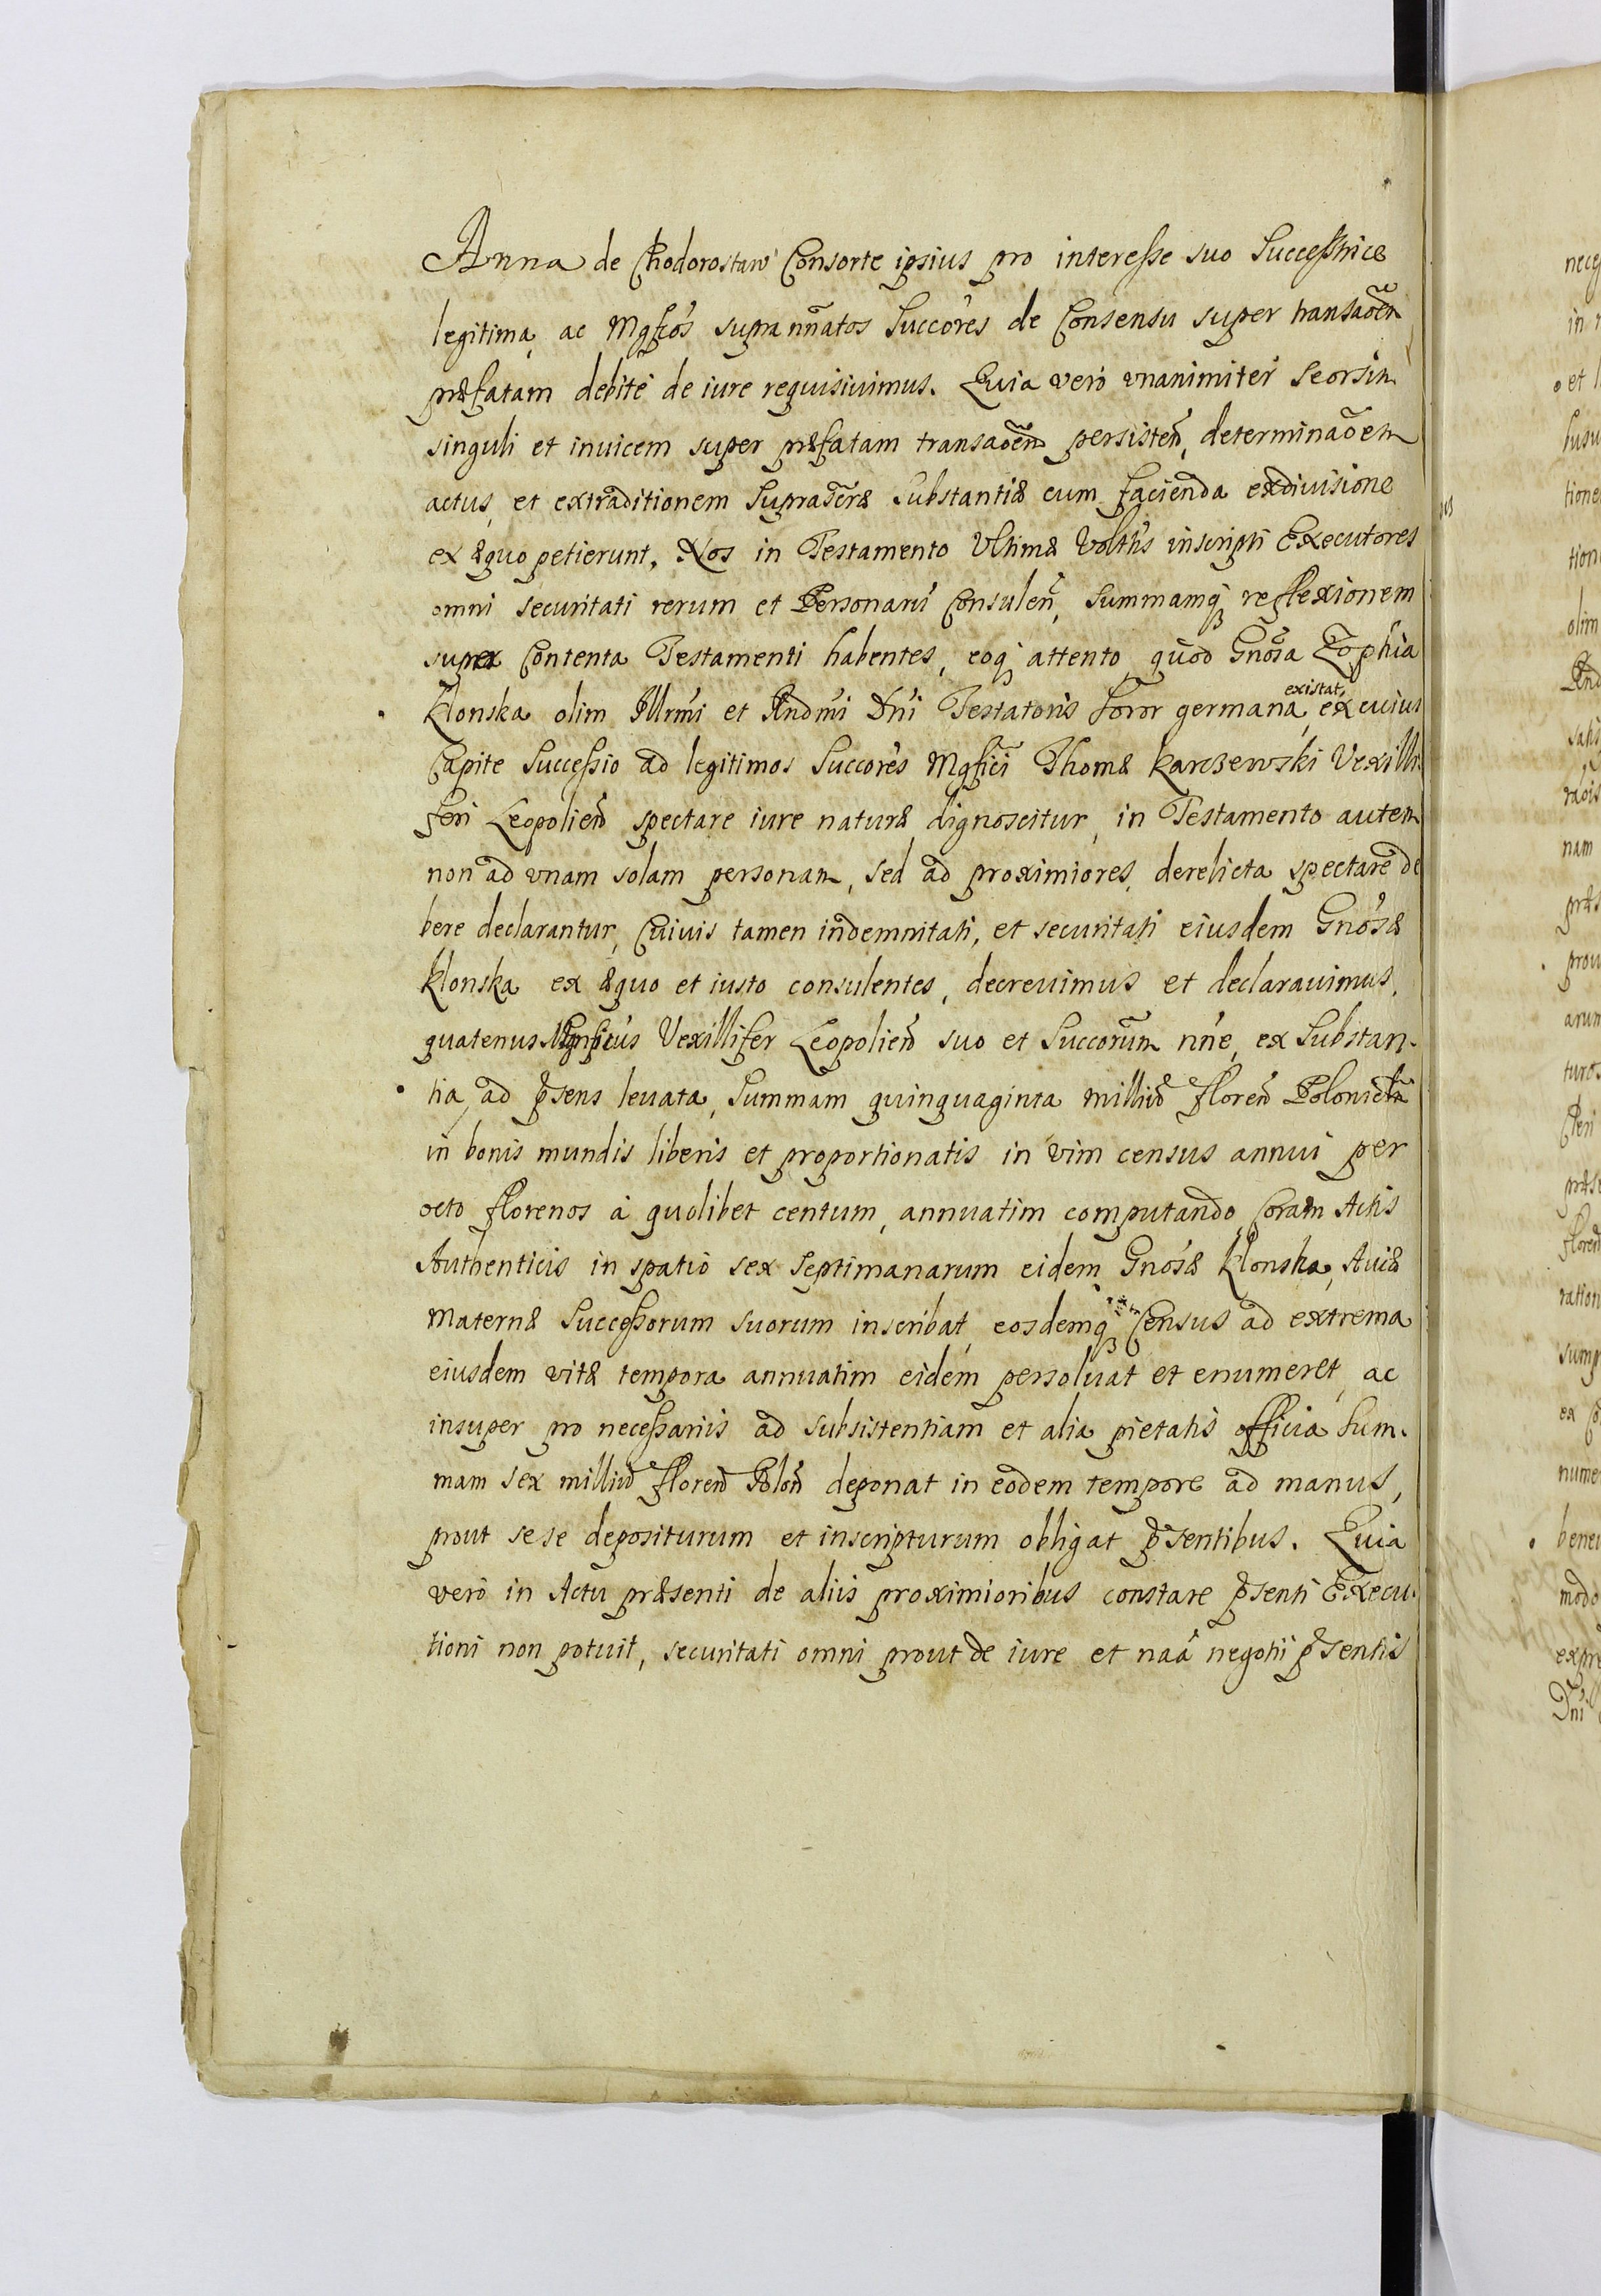 Anna de Chodorostaw Consorte ipsius pro interesse suo Successtrice
legitima, ac Mgfcos supranñatos Succores de Consensu super transaõem
præfatam debitè de iure requisiuimus. Quia verò vnanimiter Seorsim
singuli et inuicem super præfatam transaõem persisteñ, determinaõem
actus, et extraditionem Suprascræ Substantiæ cum facienda exdiuisione
ex æquo petierunt, Nos in Testamento Vltimæ Volttis inscripti Executores
omni securitati rerum et Personarũ Consuleñ, Summamq reflexionem
super Contenta Testamenti habentes, eoq attento, quod Gnosa Zophia
Klonska olim Illrmi et Rndmi Dni Testatoris Soror germana existat, ex cuius
Capite Successio ad legitimos Succores Mgfici Thomæ Karczewski Vexilli
feri Leopolieñ spectare iure naturæ dignoscitur, in Testamento autem
non ad vnam solam personam, sed ad proximiores, derelicta spectare de
bere declarantur, Cuiuis tamen indemnitati, et securitati eiusdem Gnosæ
Klonska ex æquo et iusto consulentes, decreuimus et declarauimus,
quatenus Mgnficus Vexillifer Leopolieñ suo et Succorum nñe, ex Substan-
tia, ad pñsens leuata, Summam quinquaginta milliũ floreñ Polonicłm
in bonis mundis liberis et proportionatis in vim census annui per
octo florenos à quolibet centum, annuatim computando, Coram Actis
Authenticis in spatio sex Septimanarum eidem Gnosæ Klonska, Auiæ
Maternæ Successorum suorum inscribat, eosdemq Census ad extrema
eiusdem vitæ tempora annuatim eidem persoluat et enumeret, ac
insuper pro necessariis ad subsistentiam et alia pietatis officia Sum-
mam sex milliũ floreñ Poloñ deponat in eodem tempore ad manus,
prout sese depositurum et inscripturum obligat pñsentibus. Quia
verò in Actu præsenti de aliis proximioribus constare pñsenti Execu-
tioni non potuit, securitati omni prout de iure et naã negotii pñsentis